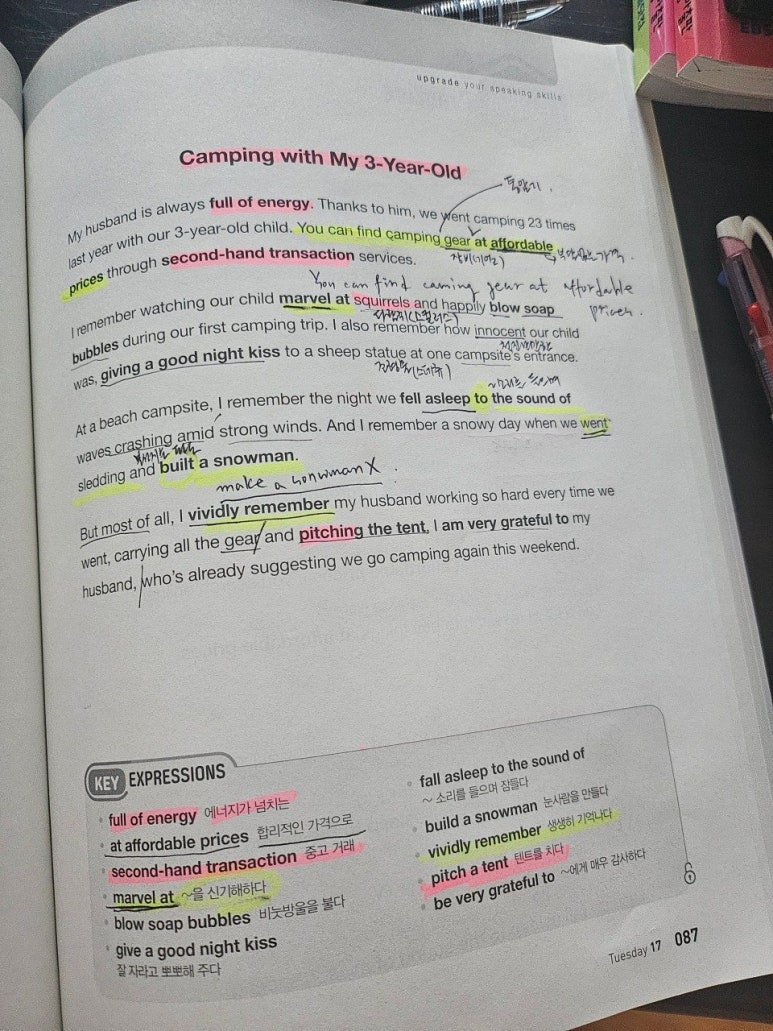 upgrade your speaking skills
Camping with My 3-Year-Old
My husband is always full of energy. Thanks to him, we went camping 23 times
last year with our 3-year-old child. You can find camping gear at affordable
prices through second-hand transaction services.
You can find caming gear at affordable
prices.
I remember watching our child marvel at squirrels and happily blow soap
bubbles during our first camping trip. I also remember how innocent our child
was, giving a good night kiss to a sheep statue at one campsite's entrance.
At a beach campsite, I remember the night we fell asleep to the sound of
waves crashing amid strong winds. And I remember a snowy day when we went
sledding and built a snowman.
make a snowman X
But most of all, I vividly remember my husband working so hard every time we
went, carrying all the gear and pitching the tent. I am very grateful to my
husband, who's already suggesting we go camping again this weekend.
KEY EXPRESSIONS
full of energy 에너지가 넘치는
at affordable prices 합리적인 가격으로
second-hand transaction 중고 거래
marvel at ~을 신기해하다
blow soap bubbles 비눗방울을 불다
give a good night kiss
잘 자라고 뽀뽀해 주다
fall asleep to the sound of
~ 소리를 들으며 잠들다
build a snowman 눈사람을 만들다
vividly remember 생생히 기억나다
pitch a tent 텐트를 치다
be very grateful to ~에게 매우 감사하다
Tuesday 17 087